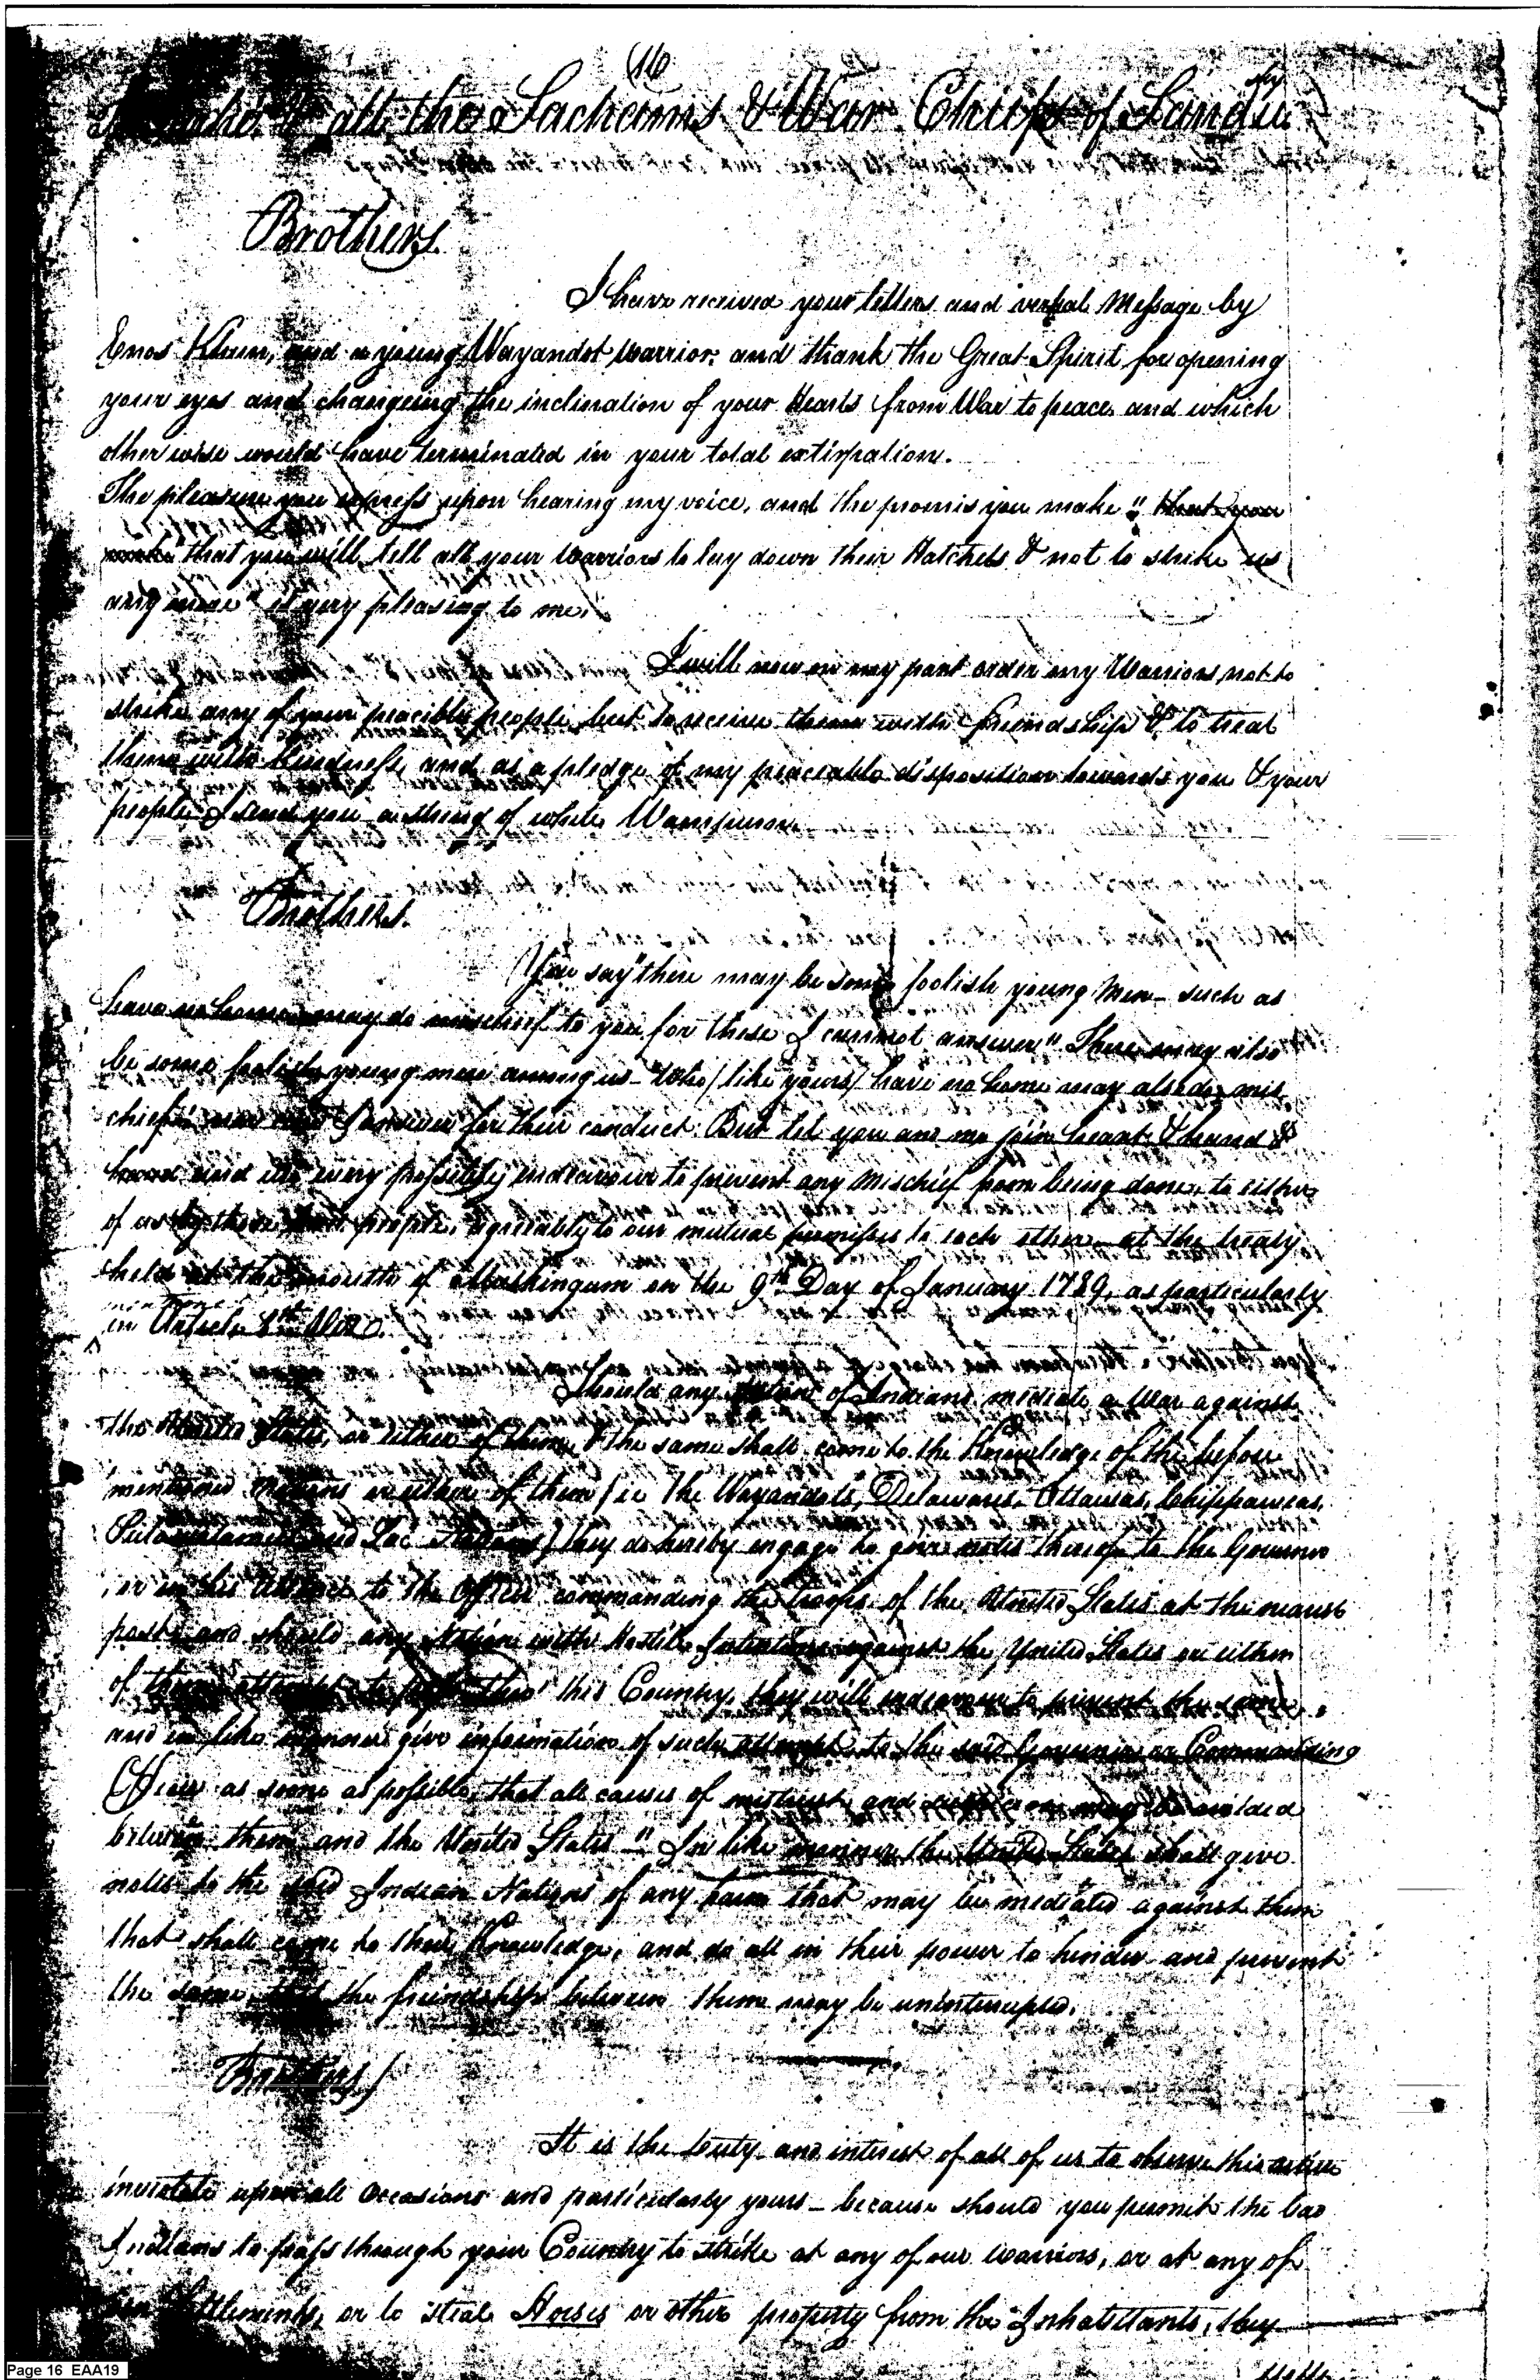 (16
all the Sachems & War Chiefs of Sandusky
Brothers.
I have received your letters and verbal Message by
and a young Wayandot warrior; and thank the Great Spirit for opening
your eyes and changeing the inclination of your Hearts from War to peace, and which
otherwise would have terminated in your total extirpation.
The pleasure you express upon hearing my voice, and the promis you make " that you
make that you will tell all your warriors to lay down their Hatchets & not to strike us
any more" is very pleasing to me.
I will now on my part order my Warriors not to
strike any of your peacible people but to receive them with friendship & to treat
them with kindness, and as a pledge of my peaceable disposition towards you & your
people I send you a string of white Wampum.
Brothers.
You say "there may be some foolish young Men - such as
have no home may do mischief to you, for these I cannot answer" There may also
be some foolish young men among us - Who (like yours) have no home may also do mis
chief nor can I answer for their conduct. But let you and me join heart & hand &
and use every possible endeavour to prevent any Mischief from being done, to either
of us by these bad people, agreeably to our mutual promises to each other at the treaty
held at the mouth of Muskingum on the 9th Day of January 1789, as particularly
mentioned
in Article 8th
Should any Nation of Indians mediate a War against
the United States, or either of them & the same shall come to the Knowledge of the before
mentioned Nations or either of them (ie The Wayandots, Delawares, Ottawas, Chippaweas,
and Sac Nations) they do hereby engage to give notis thereof to the Governor
or in his absence to the Officer commanding the troops of the United States at the nearest
post, and should any Nation with Hostile Intentions against the United States or either
of them attempt to pass thro' this Country, they will endeavour to prevent the same,
and in like manner give information of such attempt to the said Governor or Commanding
Officer as soone as possible, that all causes of mistrust and suspicion may be avoided
between them and the United States" In like manner the United States shall give
notis to the said Indian Nations of any harm that may be mediated against them
that shall come to their Knowledge, and do all in their power to hinder and prevent
the same, that the friendship between them may be uninterrupted.
Brothers)
It is the duty and interest of all of us to observe this article
inviolate upon all occasions and particularly yours - because should you permit the bad
Indians to pass through your Country to strike at any of our warriors, or at any of
our Settlements, or to steal Horses or other property from the Inhabitants, they
Page 16 EAA19